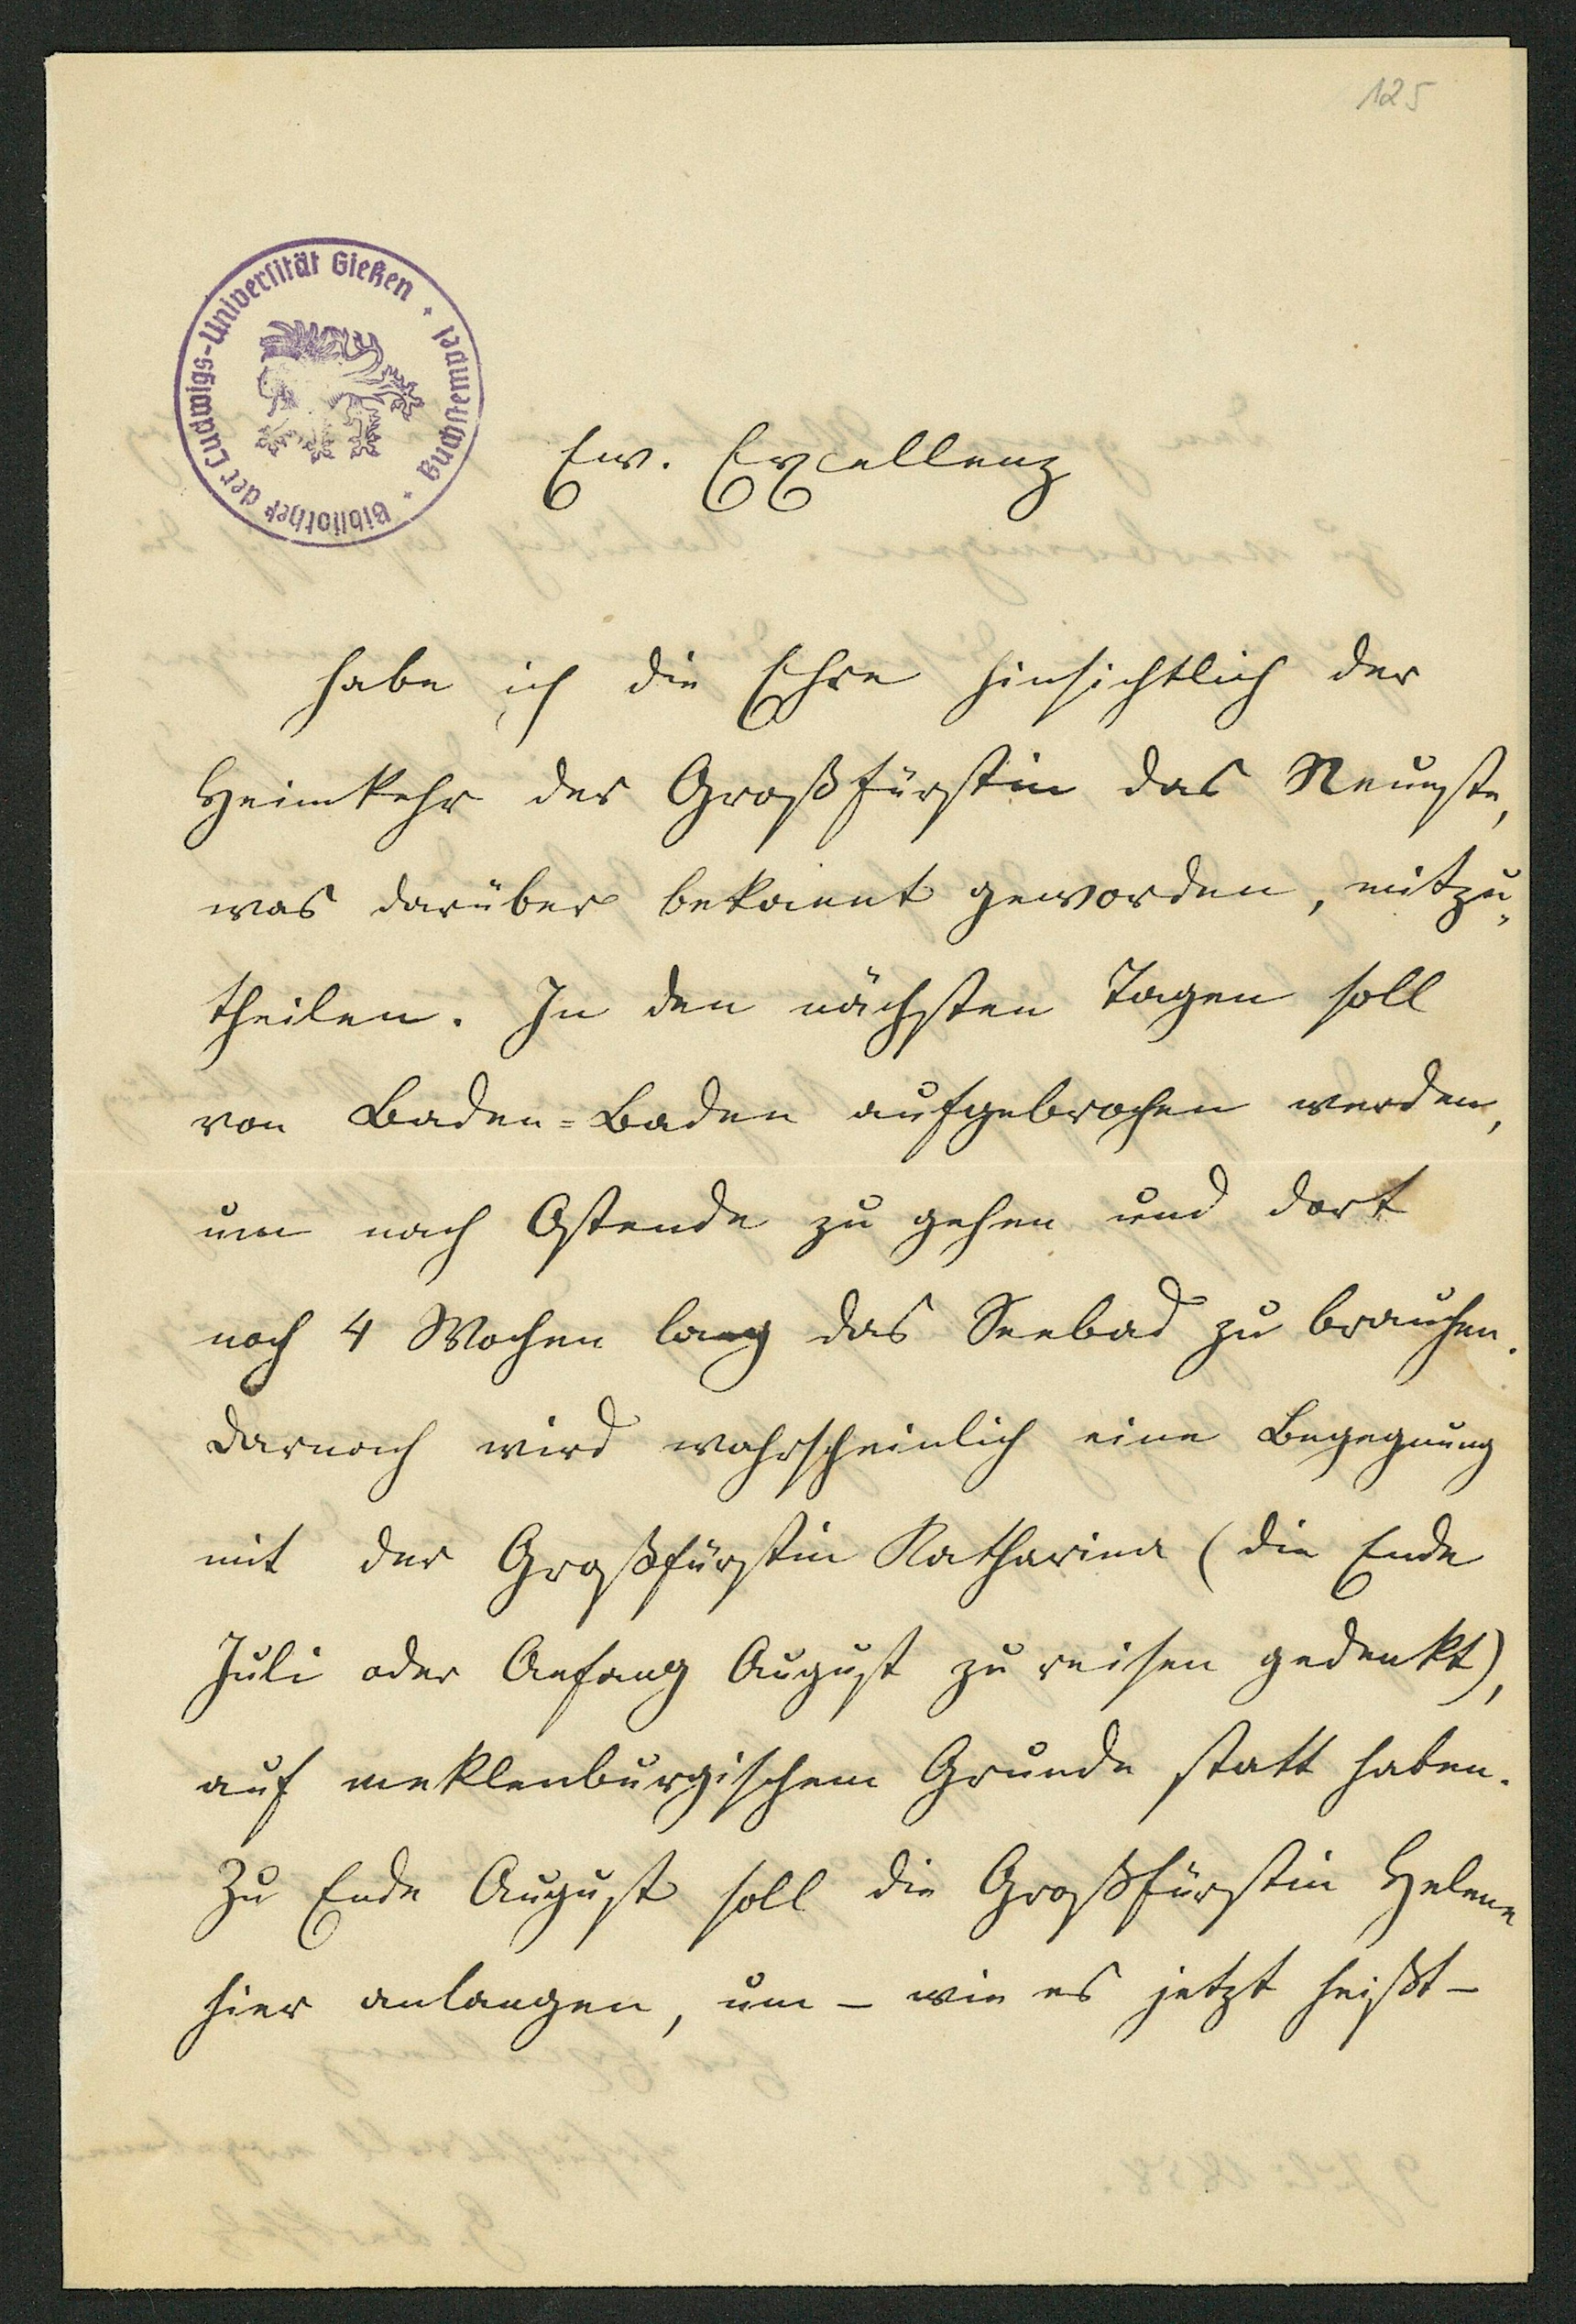 125
Bibliothek der Ludwigs-Universität Gießen · Buchstempel ·
Ew. Excellenz
habe ich die Ehre hinsichtlich der
Heimkehr der Großfürstin das Neueste,
was darüber bekannt geworden, mitzu-
theilen. In den nächsten Tagen soll
von Baden=Baden aufgebrochen werden,
um nach Ostende zu gehen und dort
noch 4 Wochen lang das Seebad zu brauchen.
Darnach wird wahrscheinlich eine Begegnung
mit der Großfürstin Katharina (die Ende
Juli oder Anfang August zu reisen gedenkt),
auf meklenburgischem Grunde statt haben.
Zu Ende August soll die Großfürstin Helene
hier anlangen, um – wie es jetzt heißt –